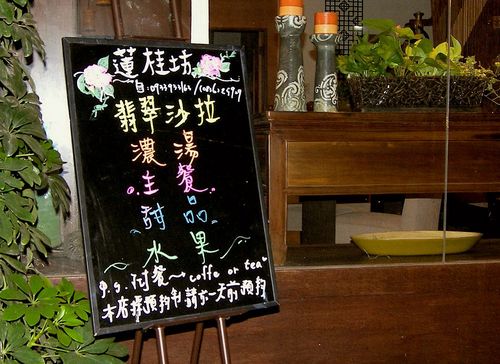 蓮桂坊
翡翠沙拉
濃湯
主餐
甜品
水果
P.S. 附餐~ coffe or tea
本店採預約制 請於一天前預約